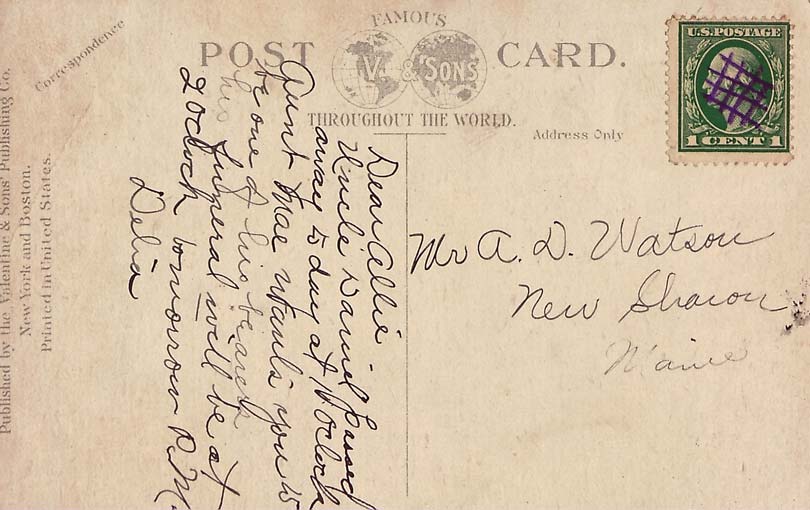 FAMOUS
POST CARD.
V. & SONS
THROUGHOUT THE WORLD.
Correspondence
Address Only
U.S. POSTAGE
1 CENT 1
Published by the Valentine & Sons' Publishing Co.
New York and Boston.
Printed in United States.
Dear Allie
Uncle Daniel passed
away to day at 1 oclock
Aunt Mae wants you to
be one of his bearers
his funeral will be at
2 oclock tomorrow P.M.
Delia
Mr A. D. Watson
New Sharon
Maine